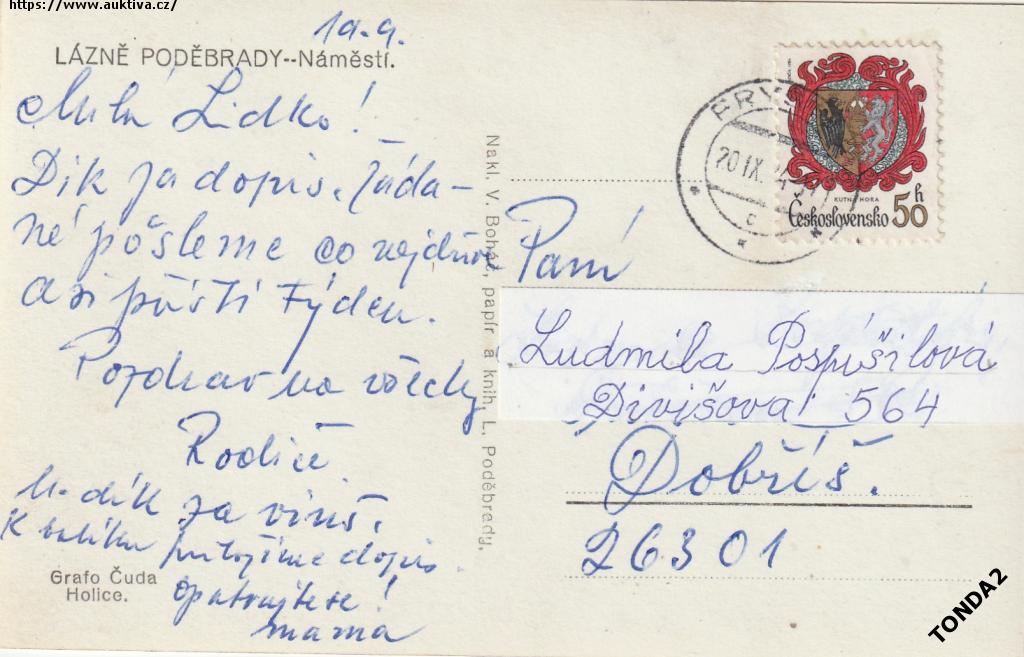 https://www.auktiva.cz/
19.9.
LÁZNĚ PODĚBRADY--Náměstí.
Milá Lidko!
Dík za dopis. Žáda-
né pošleme co nejdříve
asi příští týden.
Pozdrav na všechny
Rodiče
za
K balíku přiložíme dopis.
opatrujte se!
mama
Grafo Čuda
Holice.
Nakl. V. Boháč, papír a knih, L. Poděbrady.
20.IX.
c
KUTNÁ HORA
Československo 50h
Paní
Ludmila Pospíšilová
Divišova 564
Dobříš.
26301
TONDA2